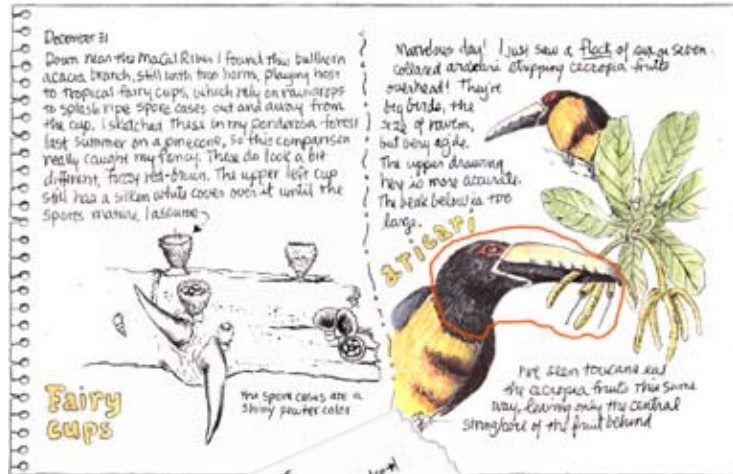 December 31
Down near the Macal River I found this bullhorn
acacia branch, still with two horns, playing host
to tropical fairy cups, which rely on raindrops
to splash ripe spore cases out and away from
the cup. I sketched these in my ponderosa forest
last summer on a pinecone, so this comparison
really caught my fancy. These do look a bit
different, fuzzy red-brown. The upper left cup
still has a silken white cover over it until the
spores mature, I assume
the spore cases are a
shiny pewter color
Fairy
cups
Marvelous day! I just saw a flock of seven
collared aracari stripping cecropia fruits
overhead! They're
big birds, the
size of ravens,
but very agile.
The upper drawing
here is more accurate.
The beak below is too
large.
aricari
I've seen toucans eat
the cecropia fruits this same
way, leaving only the central
string/core of the fruit behind